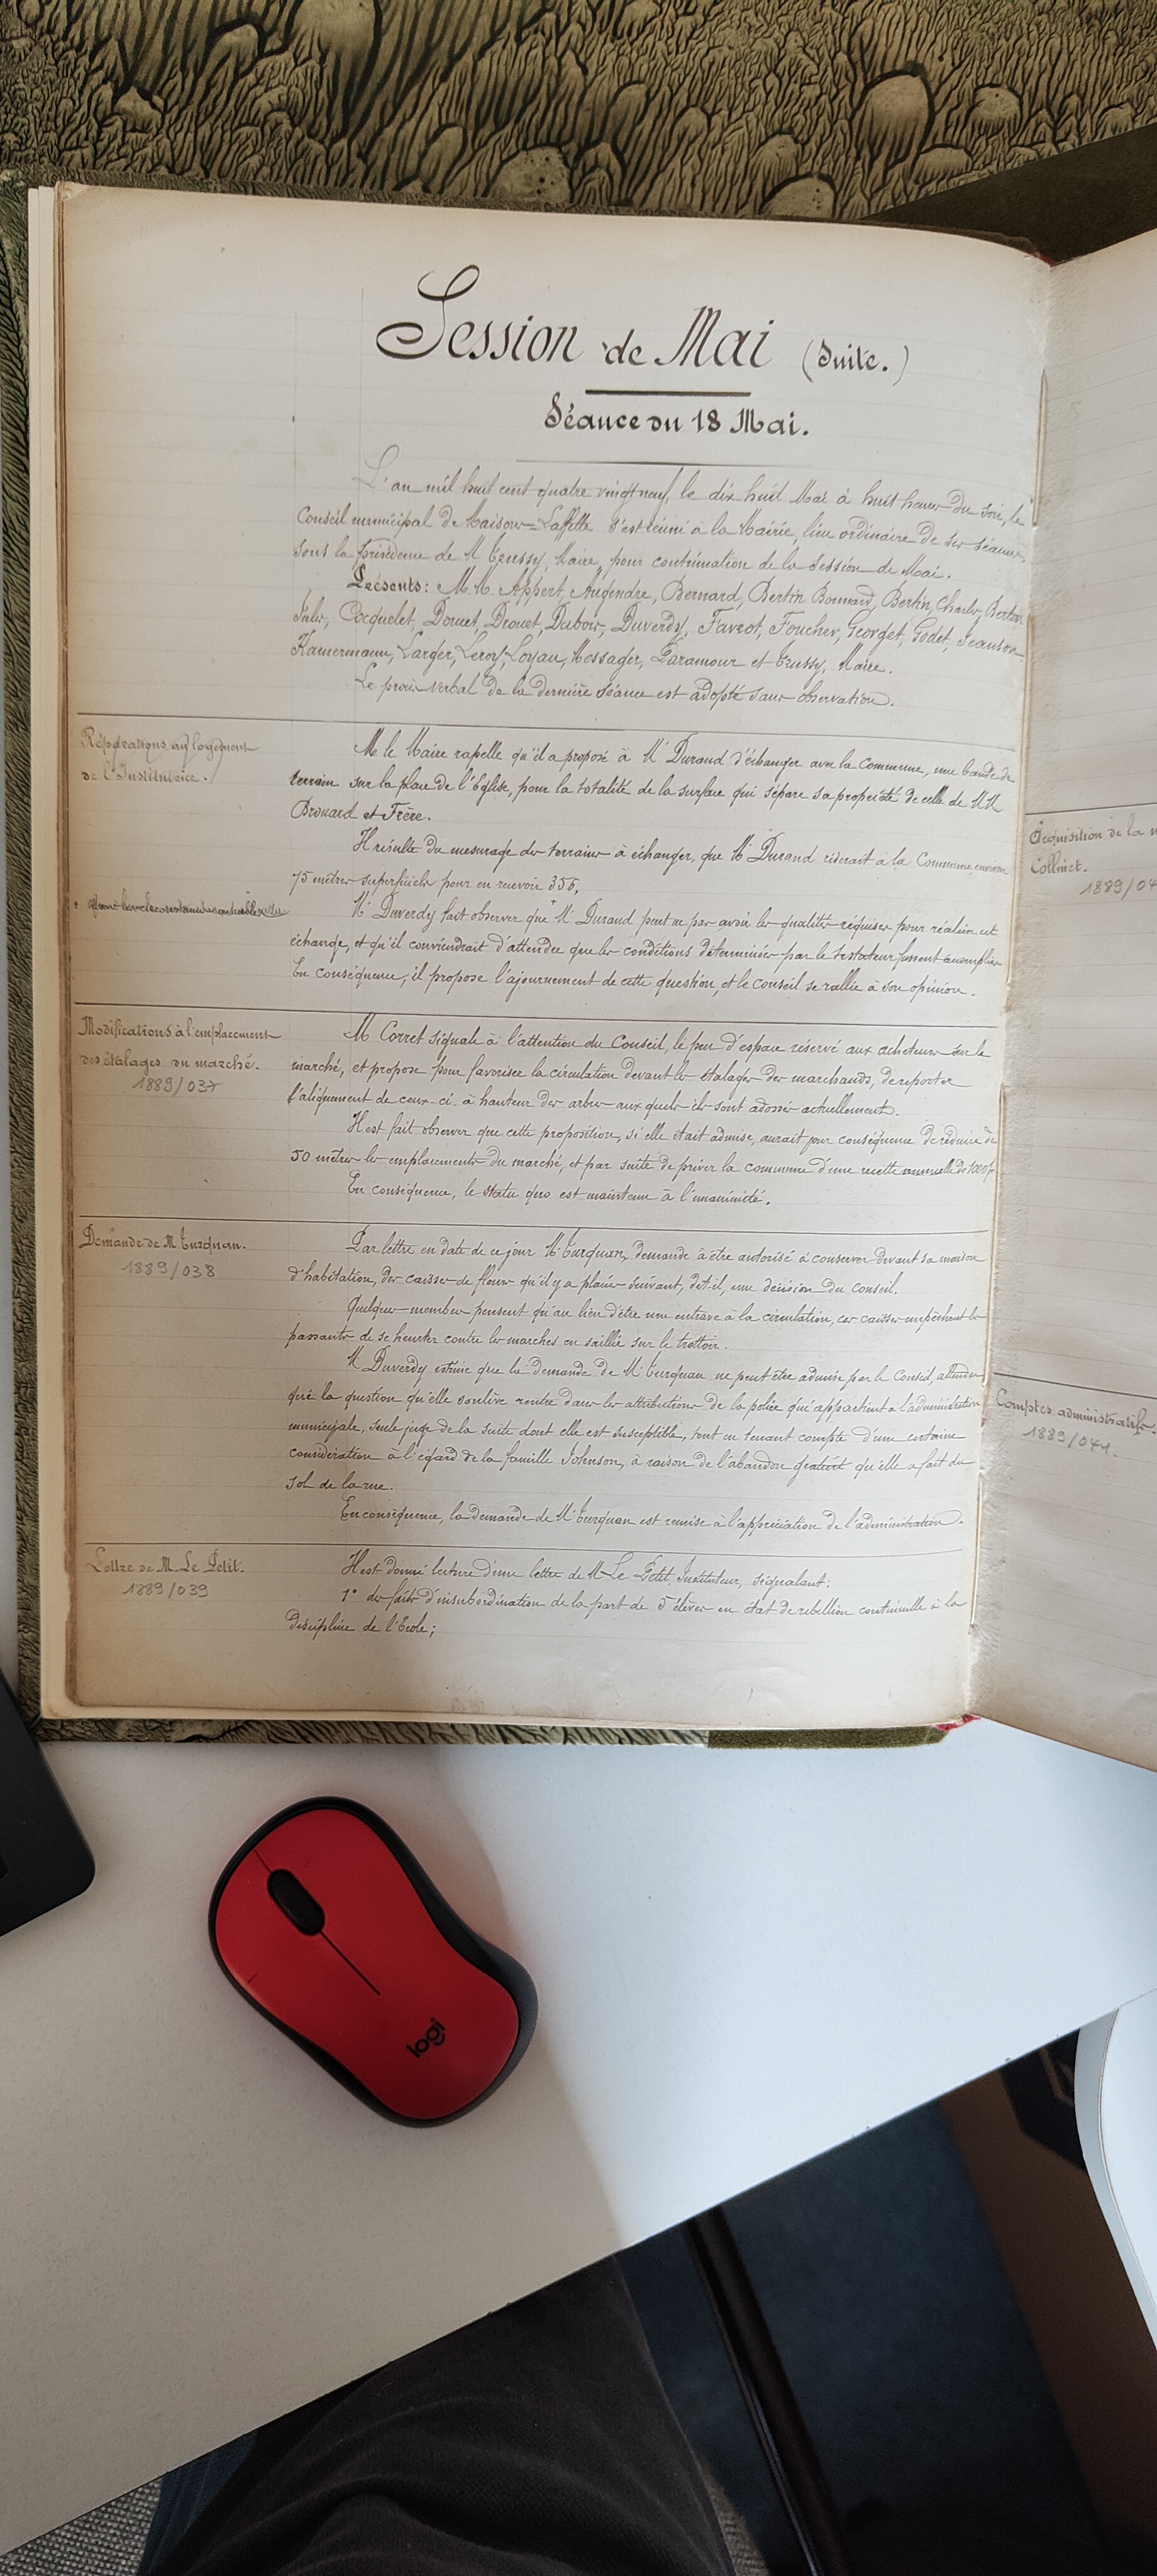 Session de Mai (Suite.)
Séance du 18 Mai.
L'an mil huit cent quatre vingt neuf, le dix huit Mai à huit heures du soir, le
Conseil municipal de Maisons=Laffitte s'est réuni à la Mairie, lieu ordinaire de ses séances,
sous la présidence de M Trussy, Maire, pour continuation de la Session de Mai.
Présents: M.M. Appert, Augendre, Bernard, Bertin Bonnard, Bertin, Charles, Bertin
Jules, Cocquelet, Douet, Drouet, Dubois, Duverdy, Favrot, Foucher, Georget, Godet, Jeanson
Kamermann, Larger, Leroy, Loyau, Messager, Paramour et Trussy, Maire.
Le procès verbal de la dernière séance est adopté sans observation.
Réparations au logement
de l'Institutrice.
M le Maire rapelle qu'il a proposé à M Durand d'échanger avec la Commune, une bande de
terrain sur la place de l'Eglise, pour la totalité de la surface qui sépare sa propriété de celle de MM
Brouard et Frère.
Il résulte du mesurage des terrains à échanger, que M Durand céderait à la Commune, environ
75 mètres superficiels pour en recevoir 356.
M Duverdy fait observer que M Durand peut ne pas avoir les qualités requises pour réaliser cet
échange, et qu'il conviendrait d'attendre que les conditions déterminées par le testateur fussent accomplies
En conséquence, il propose l'ajournement de cette question, et le conseil se rallie à son opinion.
Modifications à l'emplacement
des étalages du marché.
1889/037
M Corret signale à l'attention du Conseil, le peu d'espace réservé aux acheteurs sur le
marché, et propose pour favoriser la circulation devant les étalages des marchands, de reporter
l'alignement de ceux-ci à hauteur des arbres aux quels ils sont adossés actuellement.
Il est fait observer que cette proposition, si elle était admise, aurait pour conséquence de réduire de
50 mètres les emplacements du marché, et par suite de priver la commune d'une recette annuelle de 1000f
En conséquence, le statu quo est maintenu à l'unanimité.
Demande de M Turquan.
1889/038
Par lettre en date de ce jour M Turquan, demande à être autorisé à conserver devant sa maison
d'habitation, des caisses de fleurs qu'il y a placées suivant, dit-il, une décision du conseil.
Quelques membres pensent qu'au lieu d'être une entrave à la circulation, ces caisses empêchent les
passants de se heurter contre les marches en saillie sur le trottoir.
M Duverdy estime que la demande de M Turquan ne peut être admise par le Conseil, attendu
que la question qu'elle soulève rentre dans les attributions de la police qui appartient à l'administration
municipale, seule juge de la suite dont elle est susceptible, tout en tenant compte d'une certaine
considération à l'égard de la famille Johnson, à raison de l'abandon gratuit qu'elle a fait du
sol de la rue.
En conséquence, la demande de M Turquan est remise à l'appréciation de l'administration.
Lettre de M. Le Petit.
1889/039
Il est donné lecture d'une lettre de M Le Petit, Instituteur, signalant:
1° des faits d'insubordination de la part de 5 élèves en état de rebellion continuelle à la
discipline de l'Ecole;
Acquisition de la
Collinet.
1889/04
Comptes administratifs.
1889/041.
logi